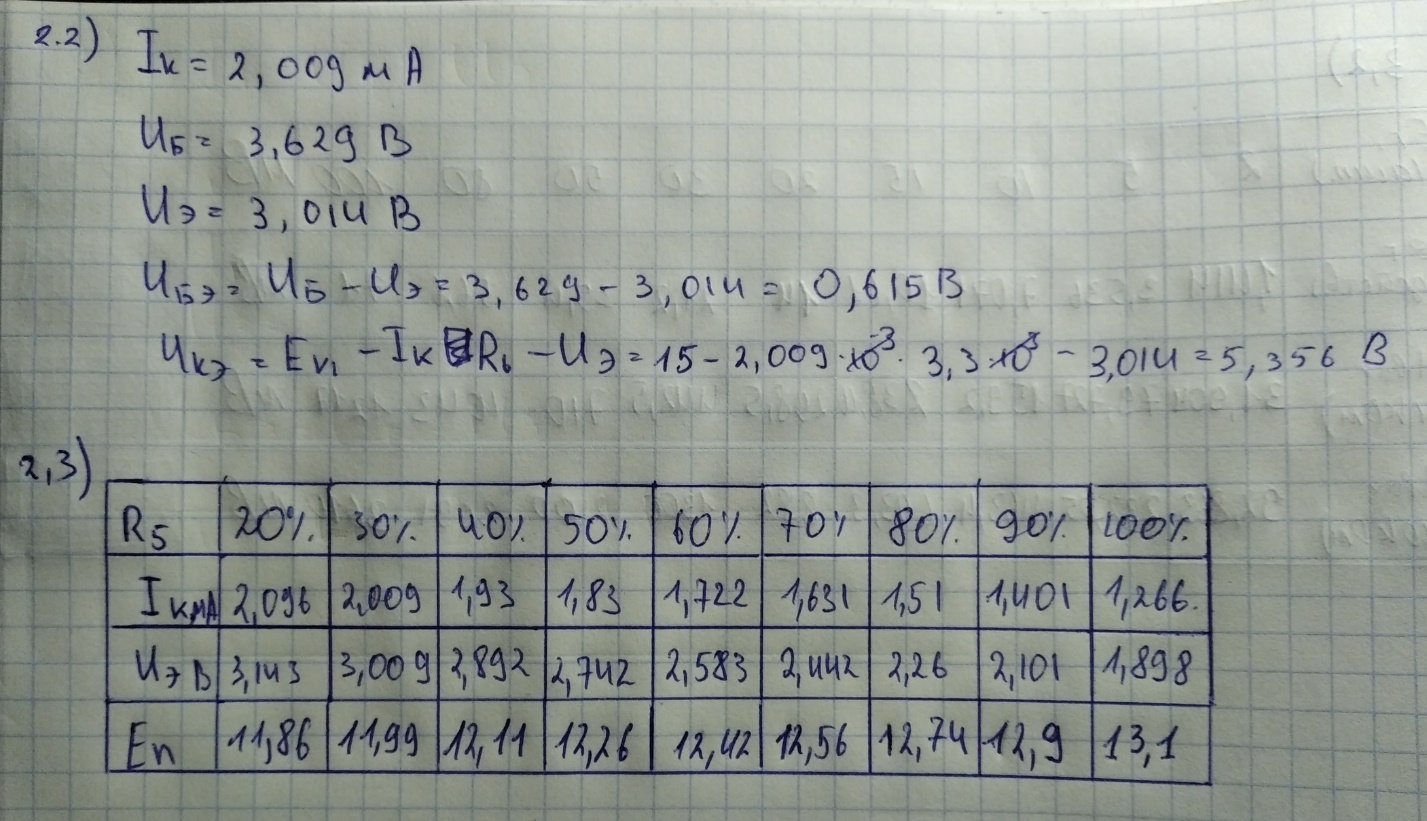 2.2) Iк = 2,009 мА
UБ = 3,629 В
UЭ = 3,014 В
UБЭ = UБ - UЭ = 3,629 - 3,014 = 0,615 В
UКЭ = Еп1 - Iк R6 - UЭ = 15 - 2,009·10⁻³· 3,3·10³ - 3,014 = 5,356 В
2,3)
R5 20% 30% 40% 50% 60% 70% 80% 90% 100%
Iк мА 2,096 2,009 1,93 1,83 1,722 1,631 1,51 1,401 1,266.
UЭ В 3,143 3,009 2,892 2,742 2,583 2,442 2,26 2,101 1,898
Еп 11,86 11,99 12,11 12,26 12,42 12,56 12,74 12,9 13,1